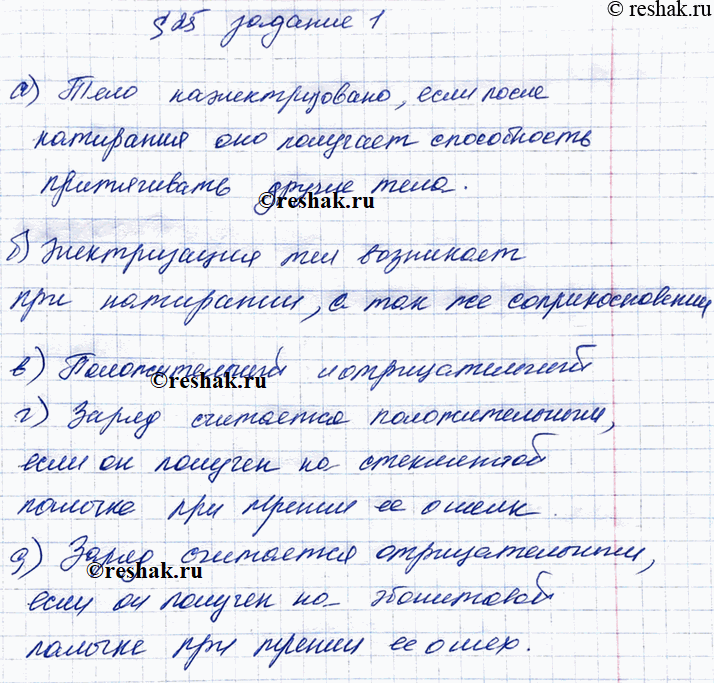 © reshak.ru
§ 25 задание 1
а) Тело наэлектризовано, если после
натирания оно получает способность
притягивать другие тела.
©reshak.ru
б) Электризация тел возникает
при натирании, а так же соприкосновении
в) Положительный и отрицательный
©reshak.ru
г) Заряд считается положительным,
если он получен на стеклянной
палочке при трении ее о шелк.
д) Заряд считается отрицательным,
©reshak.ru
если он получен на эбонитовой
палочке при трении ее о мех.